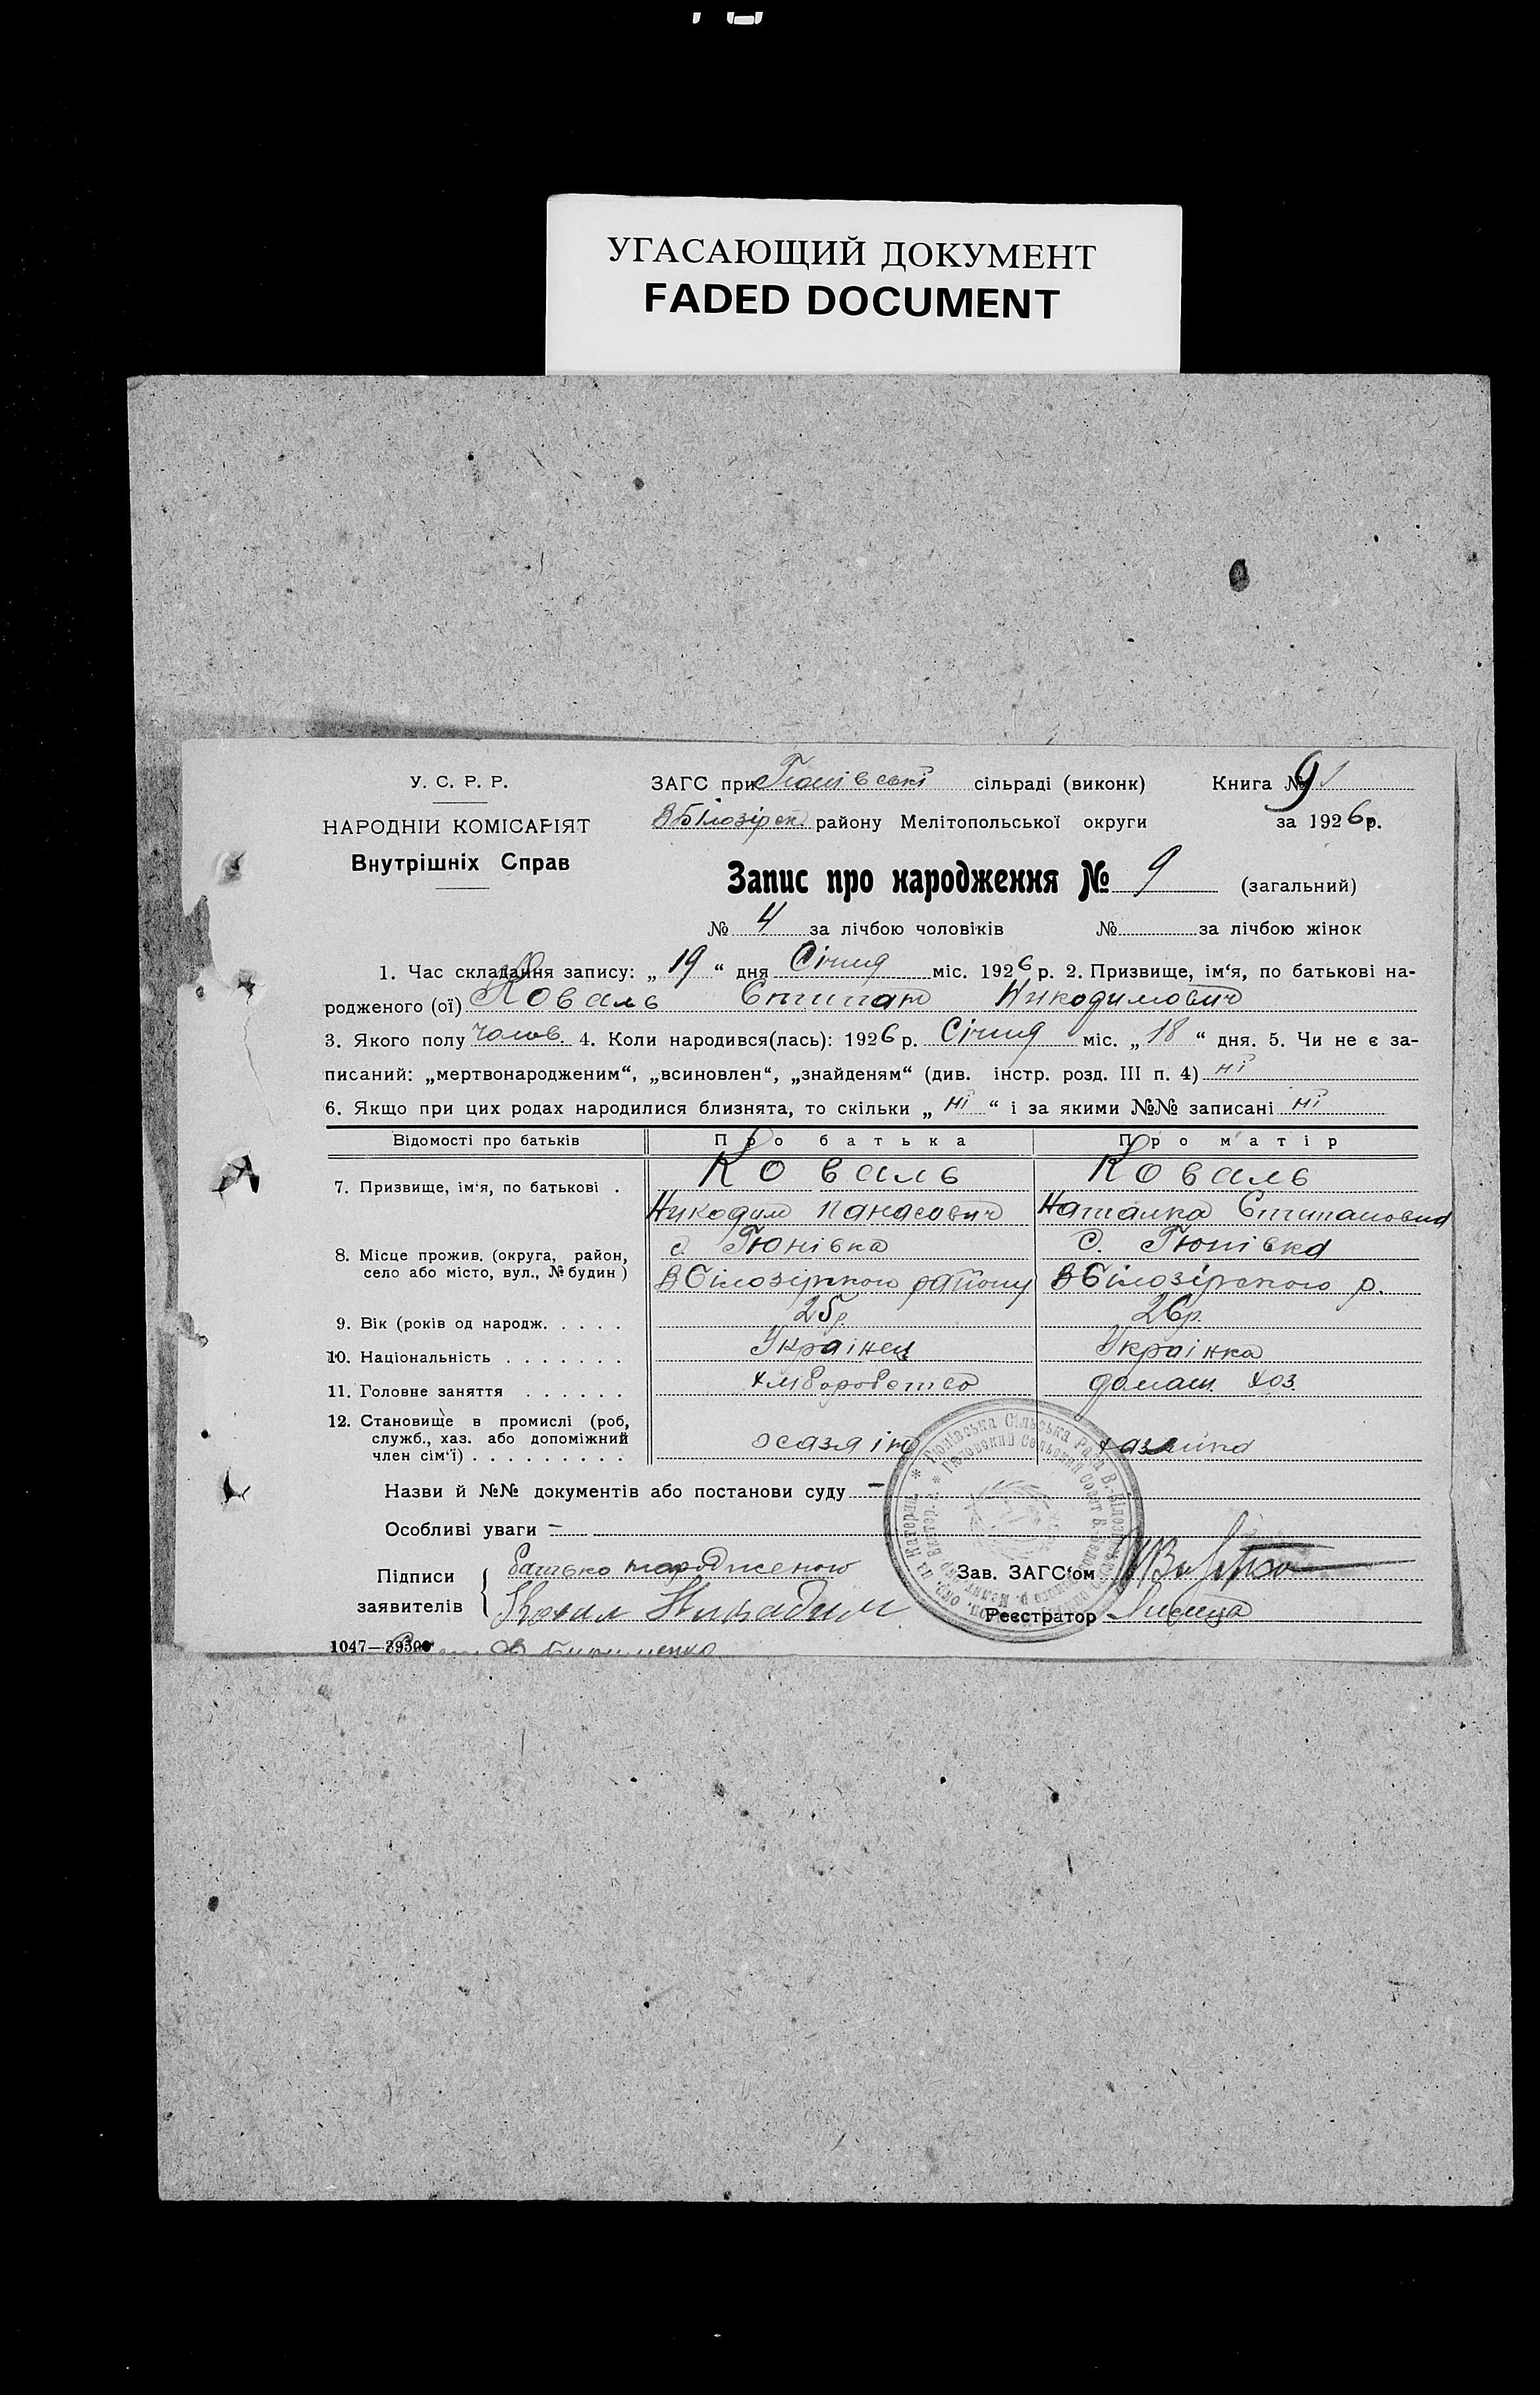 УГАСАЮЩИЙ ДОКУМЕНТ
FADED DOCUMENT
У. С. Р. Р.
НАРОДНІЙ КОМІСАРІЯТ
Внутрішніх Справ
ЗАГС при Гюнівські сільраді (виконк) Книга № 1
В Білозірск. району Мелітопольської округи за 1926 р.
9
Запис про народження № 9 (загальний)
№ 4 за лічбою чоловіків № за лічбою жінок
1. Час складання запису: „ 19 “ дня Січня міс. 1926 р. 2. Призвище, ім‘я, по батькові на-
родженого (ої) Коваль Никодимович
3. Якого полу чолов. 4. Коли народився(лась): 1926 р. Січня міс. „ 18 “ дня. 5. Чи не є за-
писаний: „мертвонародженим“, „всиновлен“, „знайденям“ (див. інстр. розд. III п. 4) ні
6. Якщо при цих родах народилися близнята, то скільки „ ні “ і за якими №№ записані ні
Відомості про батьків Про батька Про матір
7. Призвище, ім‘я, по батькові . Коваль Коваль
Никодим Панасович Наталка
8. Місце прожив. (округа, район, село або місто, вул., № будин) с. Гюнівка с. Гюнівка
В Білозірського району В Білозірского р.
9. Вік (років од народж. . . . . 25 р. 26 р.
10. Національність . . . . . . . Украінец Украінка
11. Головне заняття . . . . . . хліборобство домаш. хоз.
12. Становище в промислі (роб,
служб., хаз. або допоміжний
член сім‘ї) . . . . . . . . .
Назви й №№ документів або постанови суду –
Особливі уваги –
Підписи заявителів { батько народженого
Зав. ЗАГС‘ом
Реєстратор Лисиця
1047—3950
Гюнівська Сільська Рада